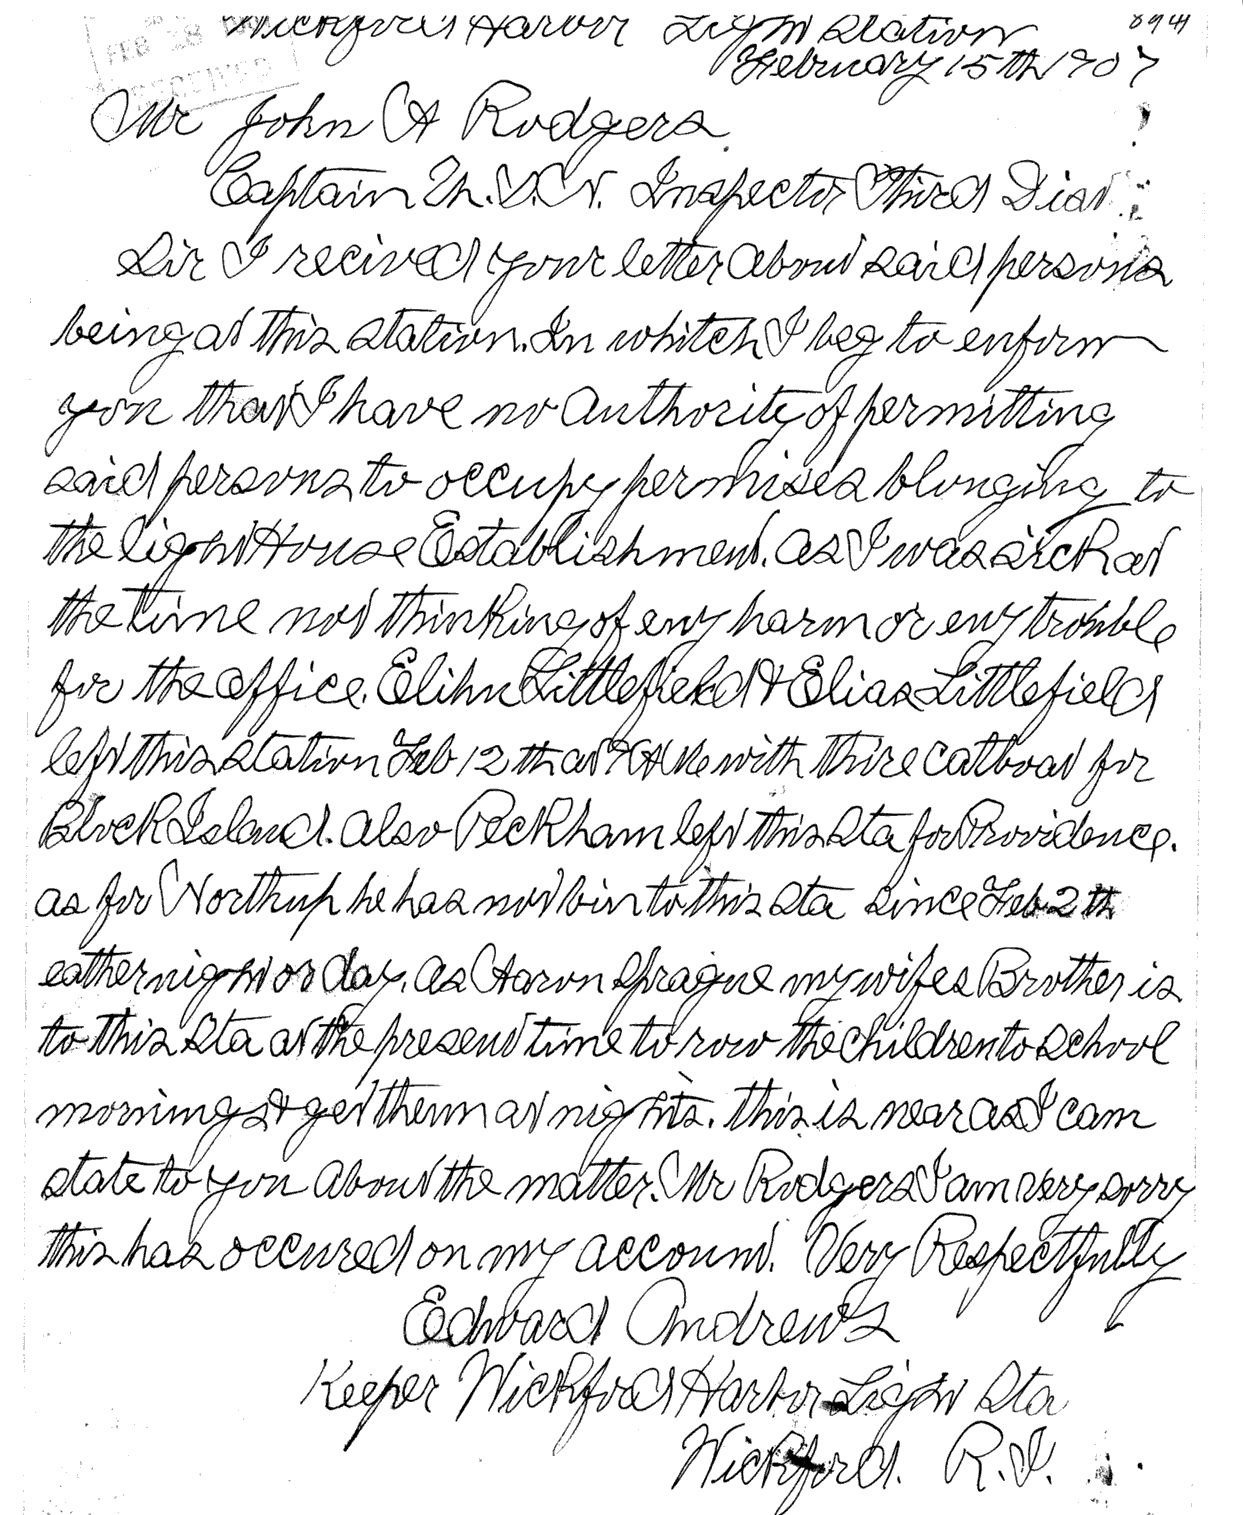 Wickford Harbor Light Station
8941
February 15th 1907
FEB 28
RECEIVED
Mr John A Rodgers.
Captain U.S.N. Inspector Third Dist
Sir I recived your letter about said persons
being at this station. In whitch I beg to enfirm
you that I have no authority of permitting
said persons to occupy permises blonging to
the light House Establishment. as I was sick at
the time not thinking of eny harm or eny trouble
for the office. Elihu Littlefield & Elias Littlefield
left this station Feb 12th at 7 A M with thire catboat for
Block Island. also Peckham left this Sta for Providence.
as for Northup he has not bin to this Sta since Feb 2th
eather night or day. as Aaron Sprague my wifes Brother is
to this Sta at the present time to row the children to school
mornings & get them at nights. this is near as I cam
state to you about the matter. Mr Rodgers I am very sorry
this has occured on my account. Very Respectfully
Edward Andrews
Keeper Wickford Harbor Light Sta
Wickford. R.I.